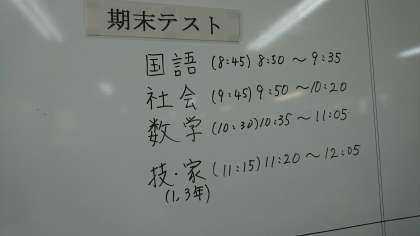 期末テスト
国語 (8:45) 8:50 〜 9:35
社会 (9:45) 9:50 〜 10:20
数学 (10:30) 10:35 〜 11:05
技・家 (11:15) 11:20 〜 12:05
(1,3年)